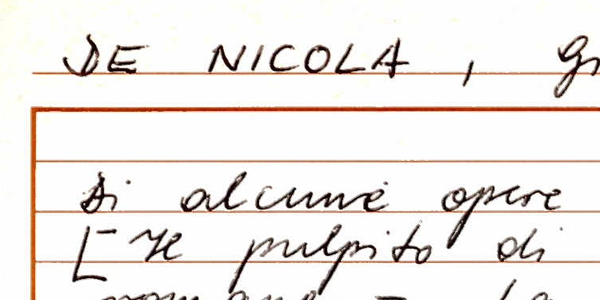 DE NICOLA, G
Di alcune opere
[Il pulpito di
romano - la